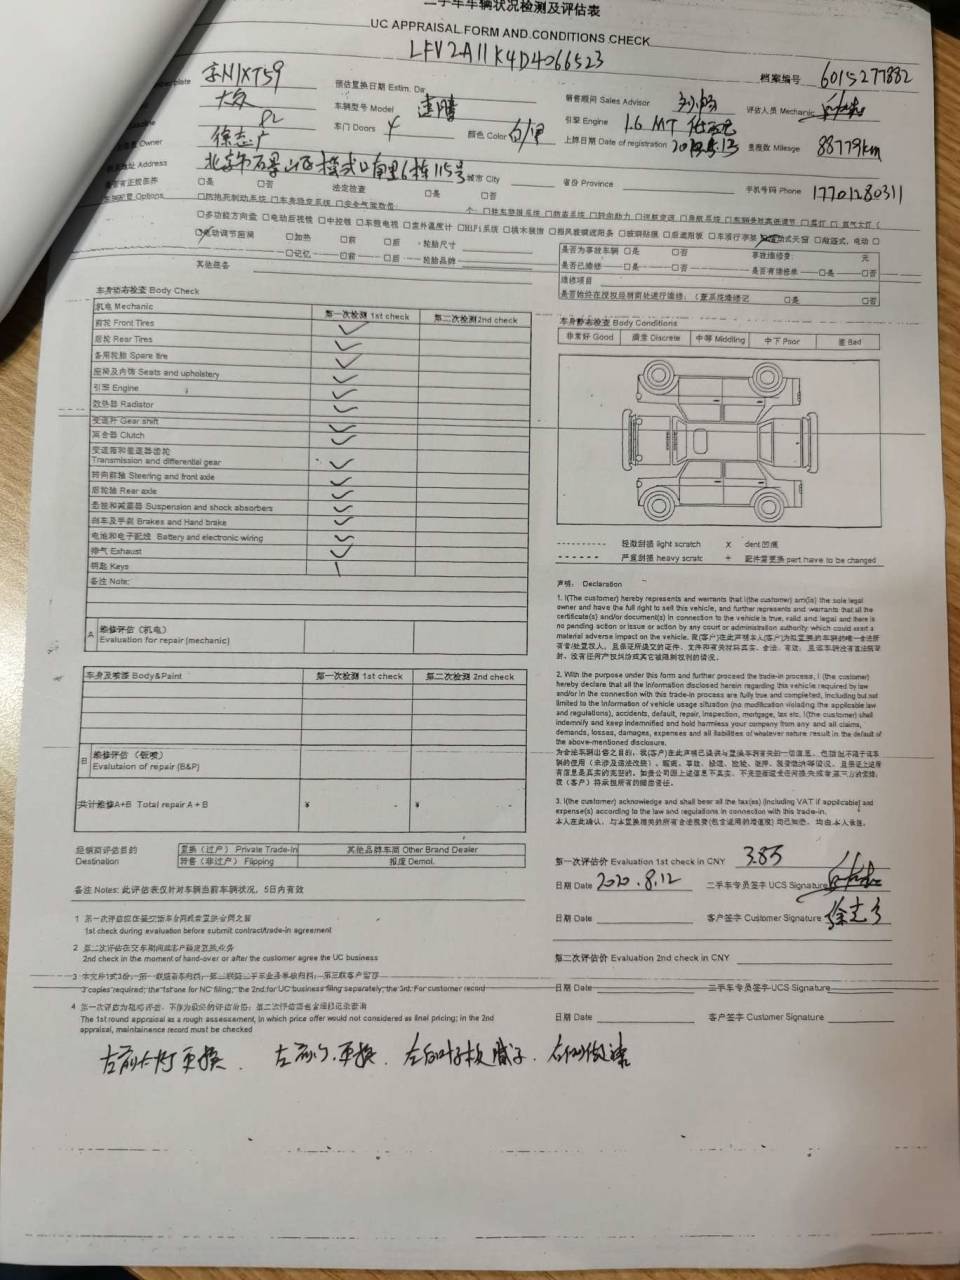 二手车车辆状况检测及评估表
UC APPRAISAL FORM AND CONDITIONS CHECK
LFV2A11K4D4066523
档案编号 6015277882
京N1XT59 预估置换日期 Estim. Da
销售顾问 Sales Advisor 评估人员 Mechanic
大众 车辆型号 Model 速腾 引擎 Engine 1.6 MT
车门 Doors 4 颜色 Color 上牌日期 Date of registration 里程数 Mileage 88779km
Owner 徐志广
地址 Address 北京市石景山区模式口南里6栋115号 城市 City 省份 Province 手机号码 Phone 17701280311
是否有正规保养 □是 □否 法定检查 □是 □否
车辆配置 Options □防抱死制动系统 □车身稳定系统 □安全气囊数量:
□多功能方向盘 □电动后视镜 □中控锁 □车载电视 □室外温度计 □HiFi系统 □桃木装饰
□电动调节座椅 □加热 □前 □后 ·轮胎尺寸
□记忆 □前 □后 ·轮胎品牌
其他装备
是否为事故车辆 □是 □否 事故维修费: 元
是否已维修 □是 □否 是否有维修单 □是 □否
维修项目
是否始终在授权经销商处进行维修:(查系统维修记 □是 □否
车身动态检查 Body Check
机电 Mechanic 第一次检测 1st check 第二次检测2nd check
前轮 Front Tires ✓
后轮 Rear Tires ✓
备用轮胎 Spare tire ✓
座椅及内饰 Seats and upholstery ✓
引擎 Engine ✓
散热器 Radiator ✓
变速杆 Gear shift ✓
离合器 Clutch ✓
变速箱和差速器齿轮
Transmission and differential gear ✓
转向前轴 Steering and front axle ✓
后轮轴 Rear axle ✓
悬挂和减震器 Suspension and shock absorbers ✓
刹车及手刹 Brakes and Hand brake ✓
电池和电子配线 Battery and electronic wiring ✓
排气 Exhaust ✓
钥匙 Keys 1
备注 Note:
A 维修评估(机电)
Evaluation for repair (mechanic)
车身及喷漆 Body&Paint 第一次检测 1st check 第二次检测 2nd check
B 维修评估(钣喷)
Evalutaion of repair (B&P)
共计维修A+B Total repair A + B ¥ - ¥ -
经销商评估目的
Destination
置换(过户) Private Trade-In 其他品牌车商 Other Brand Dealer
转售(非过户) Flipping 报废 Demol.
备注 Notes: 此评估表仅针对车辆当前车辆状况,5日内有效
1 第一次评估应在提交新车合同或者置换合同之前
1st check during evaluation before submit contract/trade-in agreement
2 第二次评估在交车期间或客户确定置换业务
2nd check in the moment of hand-over or after the customer agree the UC business
3 本文件1式3份,第一联新车归档,第二联随二手车业务单独归档,第三联客户留存
3 copies required; the 1st one for NC filing; the 2nd for UC business filing separately; the 3rd. For customer record
4
The 1st round appraisal as a rough assessement, in which price offer would not considered as final pricing; in the 2nd
appraisal, maintainence record must be checked
车身静态检查 Body Conditions
非常好 Good 满意 Discrete 中等 Middling 中下 Poor 差 Bad
轻微刮擦 light scratch X dent 凹痕
严重刮擦 heavy scratc + 配件需更换 part have to be changed
声明: Declaration
1. I(The customer) hereby represents and warrants that I(the customer) am(is) the sole legal
owner and have the full right to sell this vehicle, and further represents and warrants that all the
certificate(s) and/or document(s) in connection to the vehicle is true, valid and legal and there is
no pending action or issue or action by any court or administration authority which could exert a
material adverse impact on the vehicle. 我(客户)在此声明本人(客户)为拟置换的车辆的唯一合法所
有者/处置权人,且保证所提交的证件、文件和有关材料真实、合法、有效;且该车辆没有
没有任何产权纠纷或其它被限制权利的情况。
2. With the purpose under this form and further proceed the trade-in process, I (the customer)
hereby declare that all the information disclosed herein regarding this vehicle required by law
and/or in the connection with this trade-in process are fully true and completed, including but not
limited to the information of vehicle usage situation (no modification violating the applicable law
and regulations), accidents, default, repair, inspection, mortgage, tax etc. I(the customer) shall
indemnify and keep indemnified and hold harmless your company from any and all claims,
demands, losses, damages, expenses and all liabilities of whatever nature result in the default of
the above-mentioned disclosure.
为合法车辆出售之目的,我(客户)在此声明已提供与置换车辆有关的一切信息,包括但不限于该车
辆的使用(未涉及违法改装)、瑕疵、事故、修理、检验、抵押、税费缴纳等情况,且保证上述所
有信息是真实的完整的,
我(客户)将承担所有的赔偿责任。
3. I(the customer) acknowledge and shall bear all the tax(es) (including VAT if applicable) and
expense(s) according to the law and regulations in connection with this trade-in.
本人在此确认,与本置换相关的所有合法税费(包含适用的增值税)均已知悉,均由本人承担。
第一次评估价 Evaluation 1st check in CNY 3.85
日期 Date 2020.8.12 二手车专员签字 UCS Signature
日期 Date 客户签字 Customer Signature 徐志广
第二次评估价 Evaluation 2nd check in CNY
日期 Date 二手车专员签字 UCS Signature
日期 Date 客户签字 Customer Signature
左前大灯更换. 左前门更换. 左后叶子板腻子. 右侧做漆